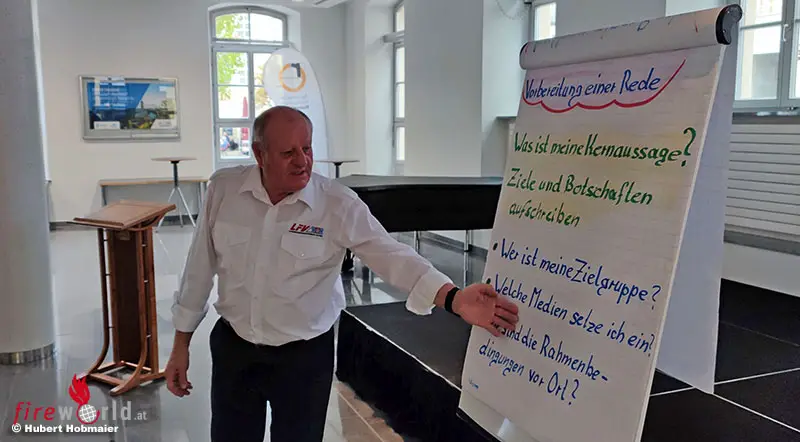 Vorbereitung einer Rede
Was ist meine Kernaussage?
Ziele und Botschaften
aufschreiben
• Wer ist meine Zielgruppe?
• Welche Medien setze ich ein?
sind die Rahmenbe-
dingungen vor Ort?
LFV
fireworld.at
© Hubert Hobmaier